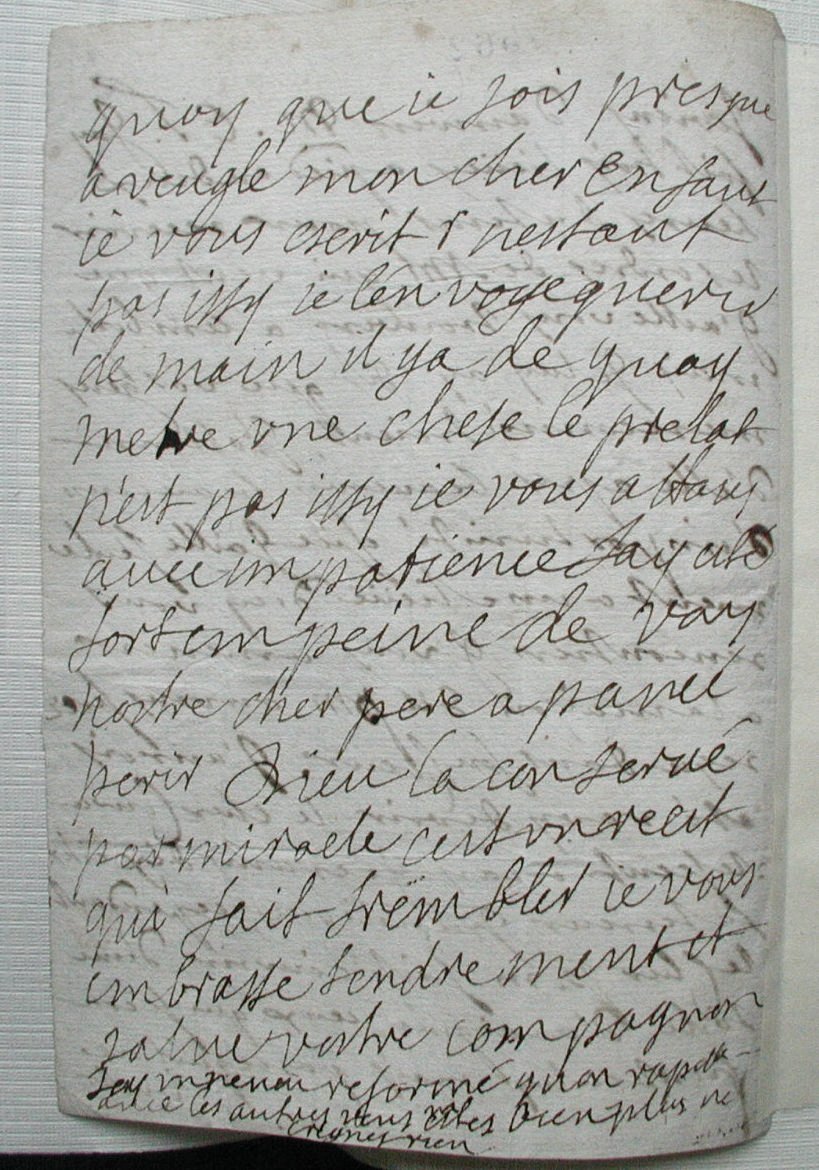 quoy que ie sois presque
aveugle mon cher enfant
ie vous escrit r nestant
pas issy ie lenvoye querir
demain il ya de quoy
metre une chese le prelat
n'est pas issy ie vous attans
avec impatience Jay esté
fort em peine de vous
nostre cher pere a pancé
perir Dieu la conservé
par miracle cest un recit
qui fait trëmbler ie vous
embrasse tendrement et
salue vostre compagnon
Jay un neveu reformé quon
avec les autres vous estes bien plus ne
creignes rien